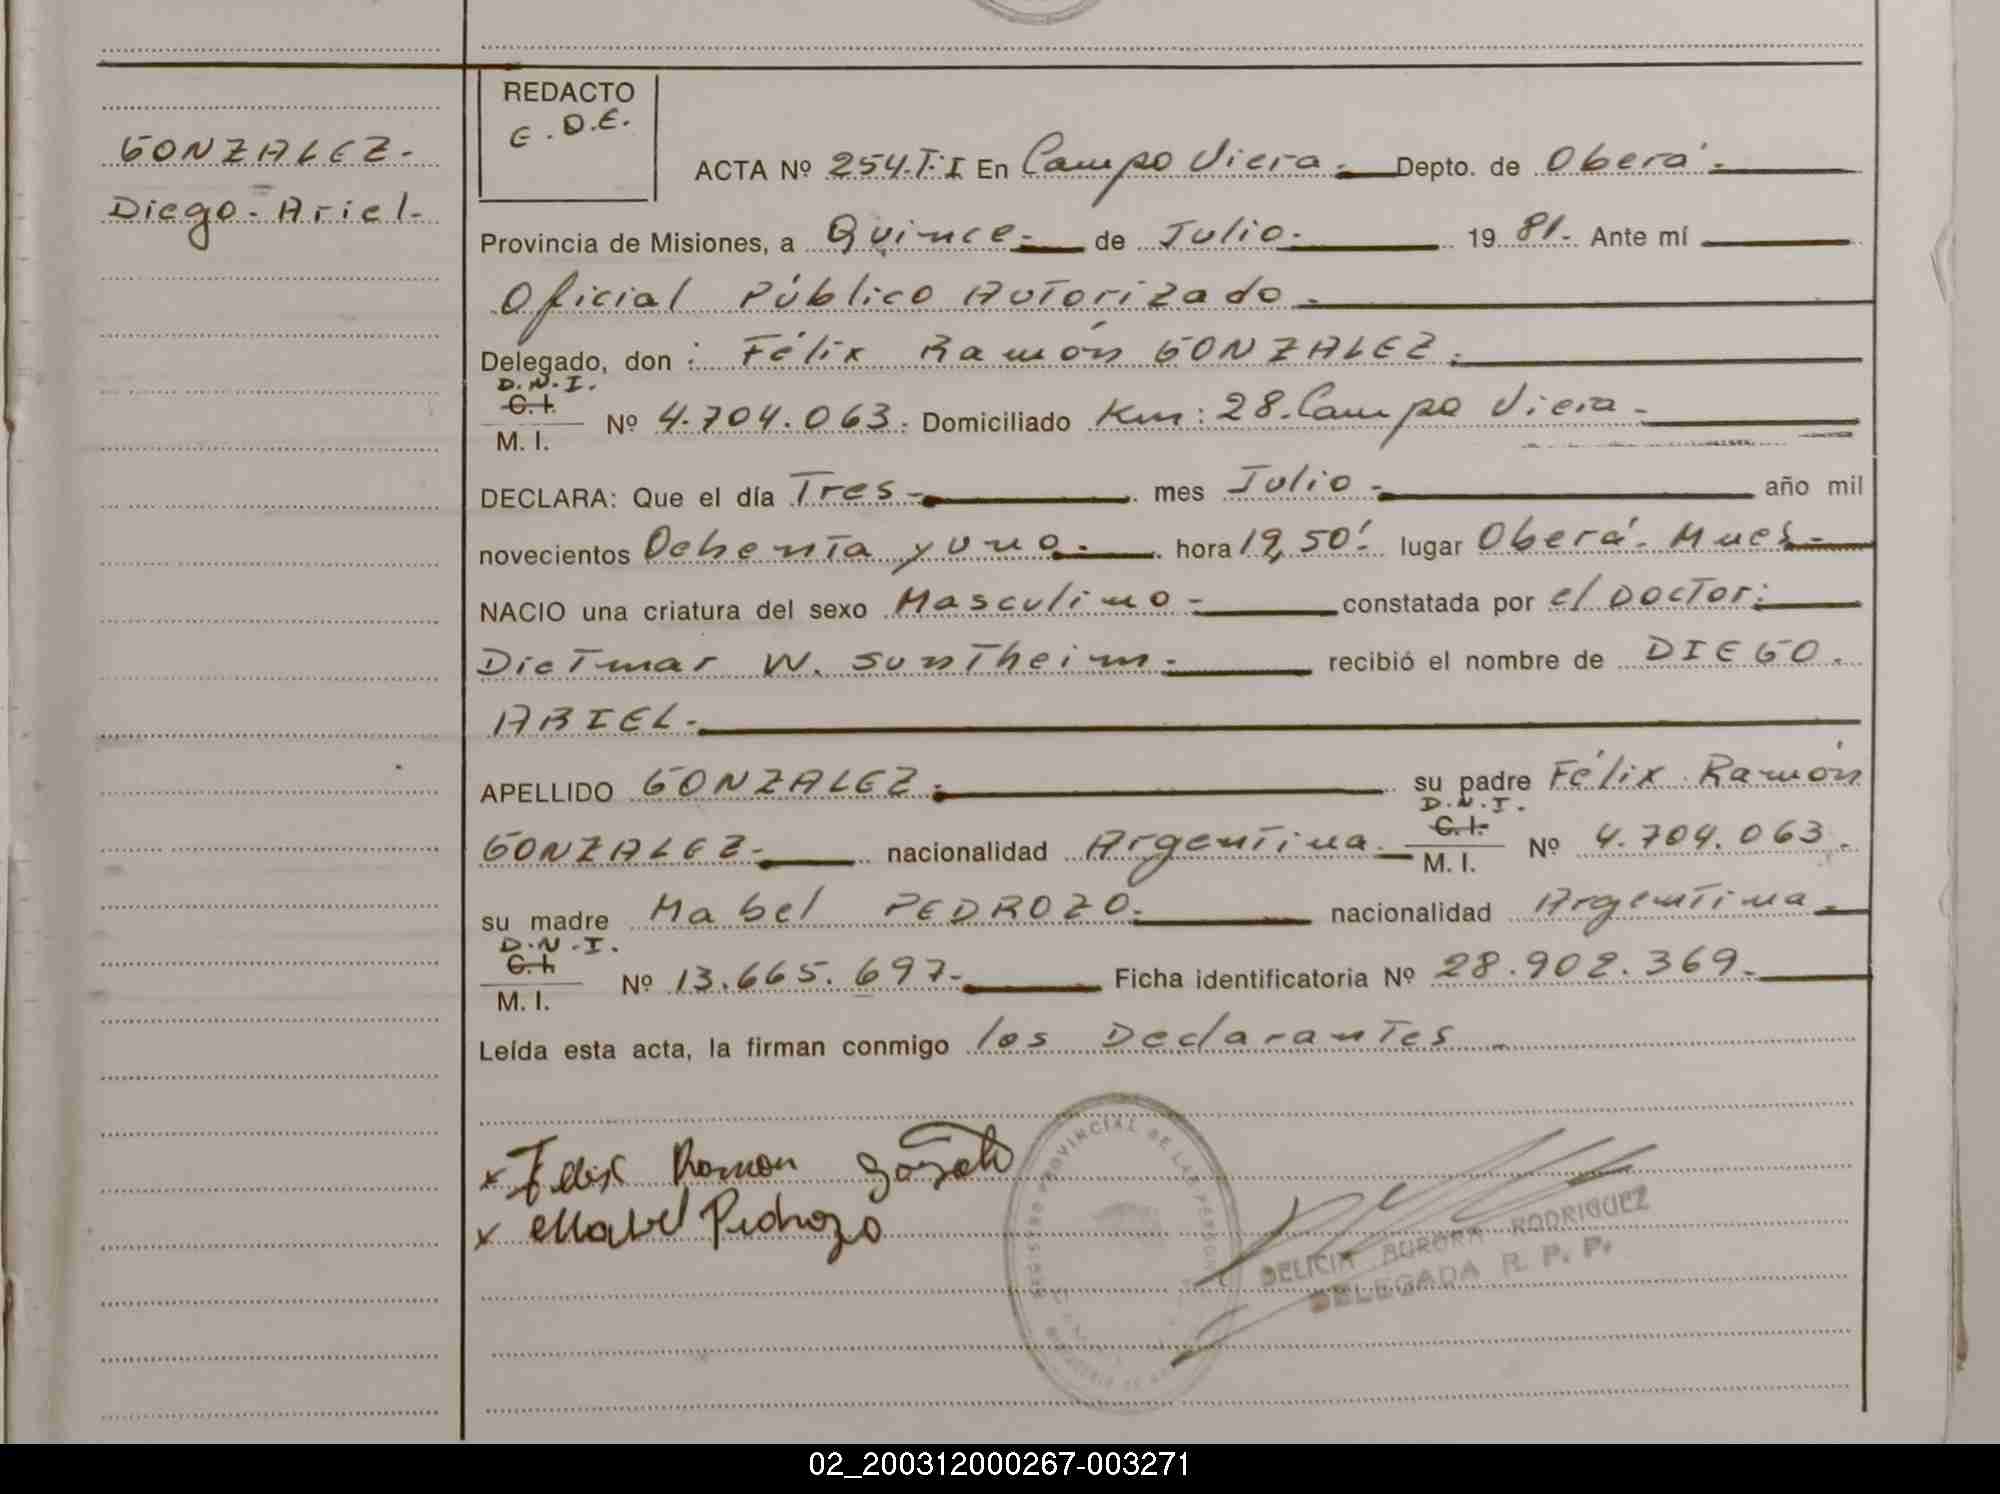 GONZALEZ.
Diego Ariel.
REDACTO
E.D.E.
ACTA Nº 254.T.I En Campo Viera. Depto. de Oberá.
Provincia de Misiones, a Quince de Julio. 19 81. Ante mí
Oficial Público Autorizado.
Delegado, don: Félix Ramón GONZALEZ.
D.N.I.
C.I.
M. I.
Nº 4.704.063. Domiciliado Km: 28. Campo Viera.
DECLARA: Que el día Tres mes Julio año mil
novecientos Ochenta y uno. hora 19,50' lugar Oberá. Mnes.
NACIO una criatura del sexo Masculino constatada por el Doctor:
Dietmar W. Suntheim. recibió el nombre de DIEGO.
ARIEL.
APELLIDO GONZALEZ. su padre Félix Ramón
D.N.I.
C.I.
M. I.
GONZALEZ. nacionalidad Argentina. Nº 4.704.063.
su madre Mabel PEDROZO. nacionalidad Argentina.
D.N.I.
C.I.
M. I.
Nº 13.665.697. Ficha identificatoria Nº 28.902.369.
Leída esta acta, la firman conmigo los Declarantes.
x Felix Ramon
x Mabel Pedrozo
REGISTRO PROVINCIAL DE LAS PERSONAS
DELICIA AURORA RODRIGUEZ
DELEGADA R. P. P.
02_200312000267-003271